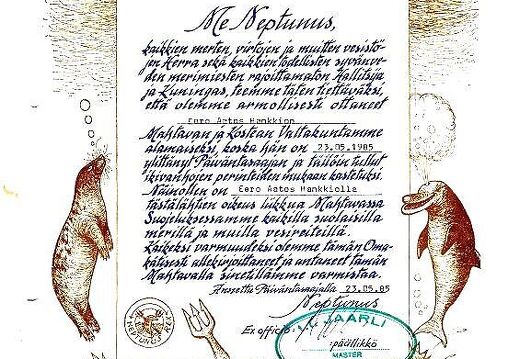 Me Neptunus,
kaikkien merten, virtojen ja muitten vesistö-
jen Herra sekä kaikkien todellisten syvänve-
den merimiesten rajoittamaton Hallitsija
ja Kuningas, teemme täten tiettäväksi,
että olemme armollisesti ottaneet
Eero Aatos Hankkion
Mahtavan ja Kostean Valtakuntamme
alamaiseksi, koska hän on 23.05.1985
ylittänyt Päiväntasaajan ja tällöin tullut
ikivanhojen perinteiden mukaan kastetuksi.
Näinollen on Eero Aatos Hankkiolla
tästälähtien oikeus liikkua Mahtavassa
Suojeluksessamme kaikilla suolaisilla
merillä ja muilla vesireiteillä.
Kaikeksi varmuudeksi olemme tämän Oma-
kätisesti allekirjoittaneet ja antaneet tämän
Mahtavalla sinetillämme varmistaa.
Annettu Päiväntasaajalla 23.05.85
Neptunus
Ex officio
NEPTUNUS REX
VAARLI
päällikkö
MASTER